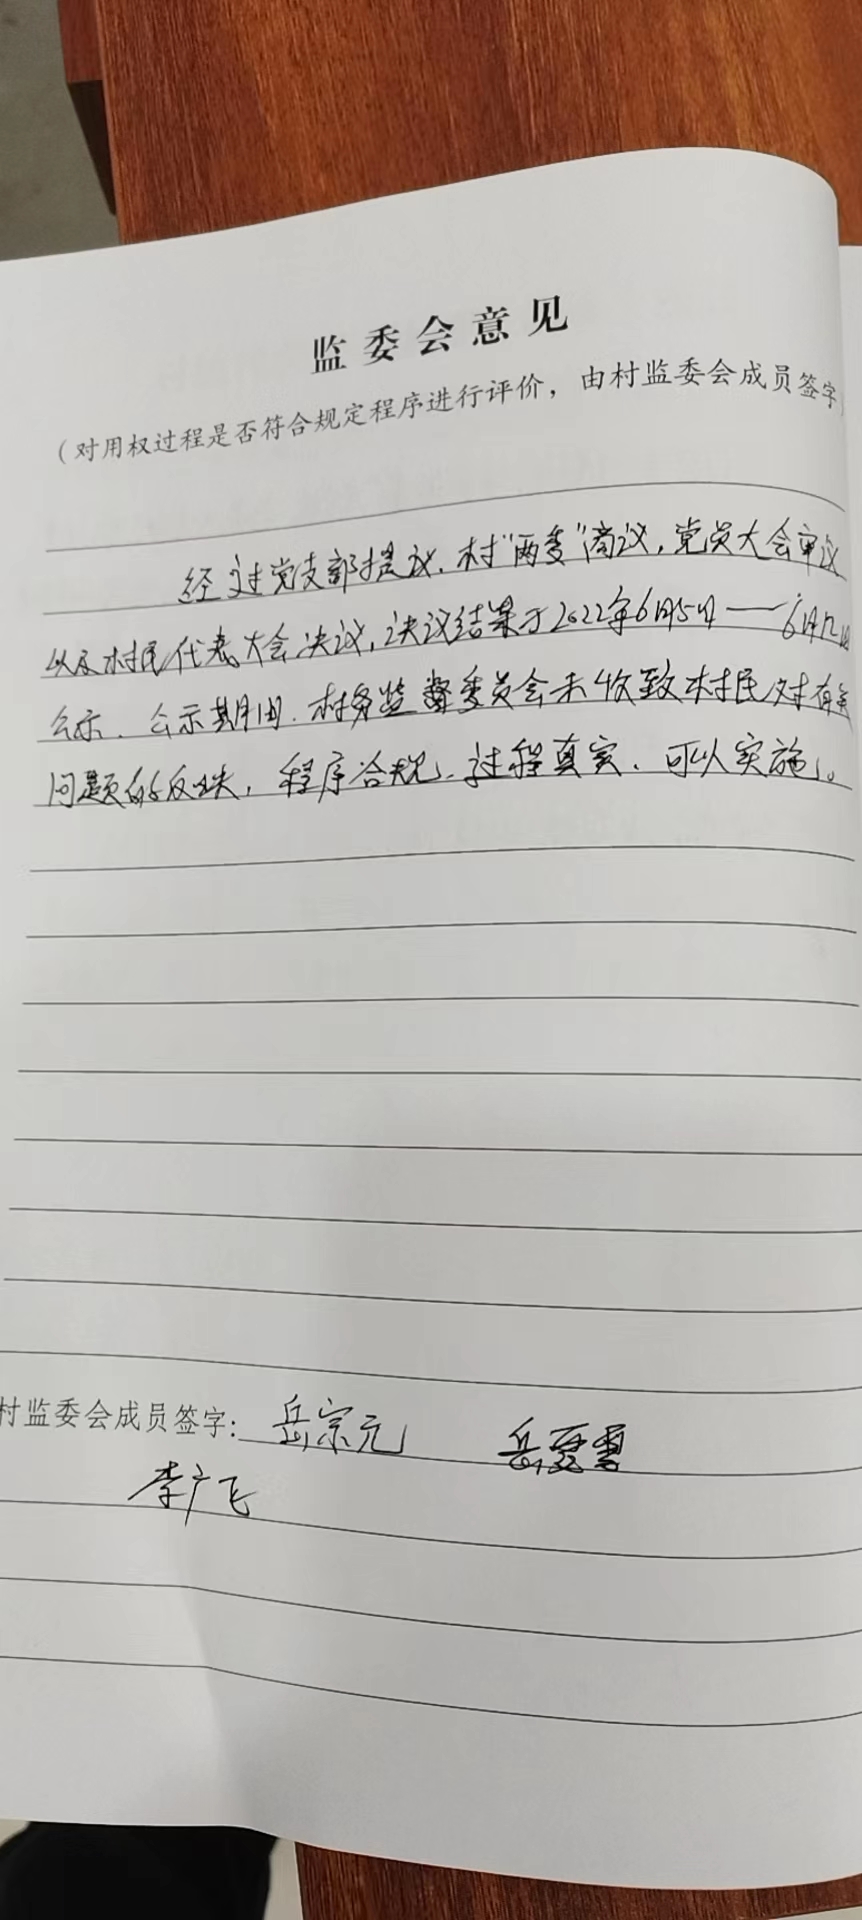 监委会意见
（对用权过程是否符合规定程序进行评价，由村监委会成员签字
经过党支部提议、村“两委”商议，党员大会审议
以及村民代表大会决议，决议结果于2022年6月5日——6月12日
公示、公示期间、村务监督委员会未收致村民对有关
问题的反映，程序合规、过程真实、可以实施。
村监委会成员签字：岳宗元 岳
李广飞